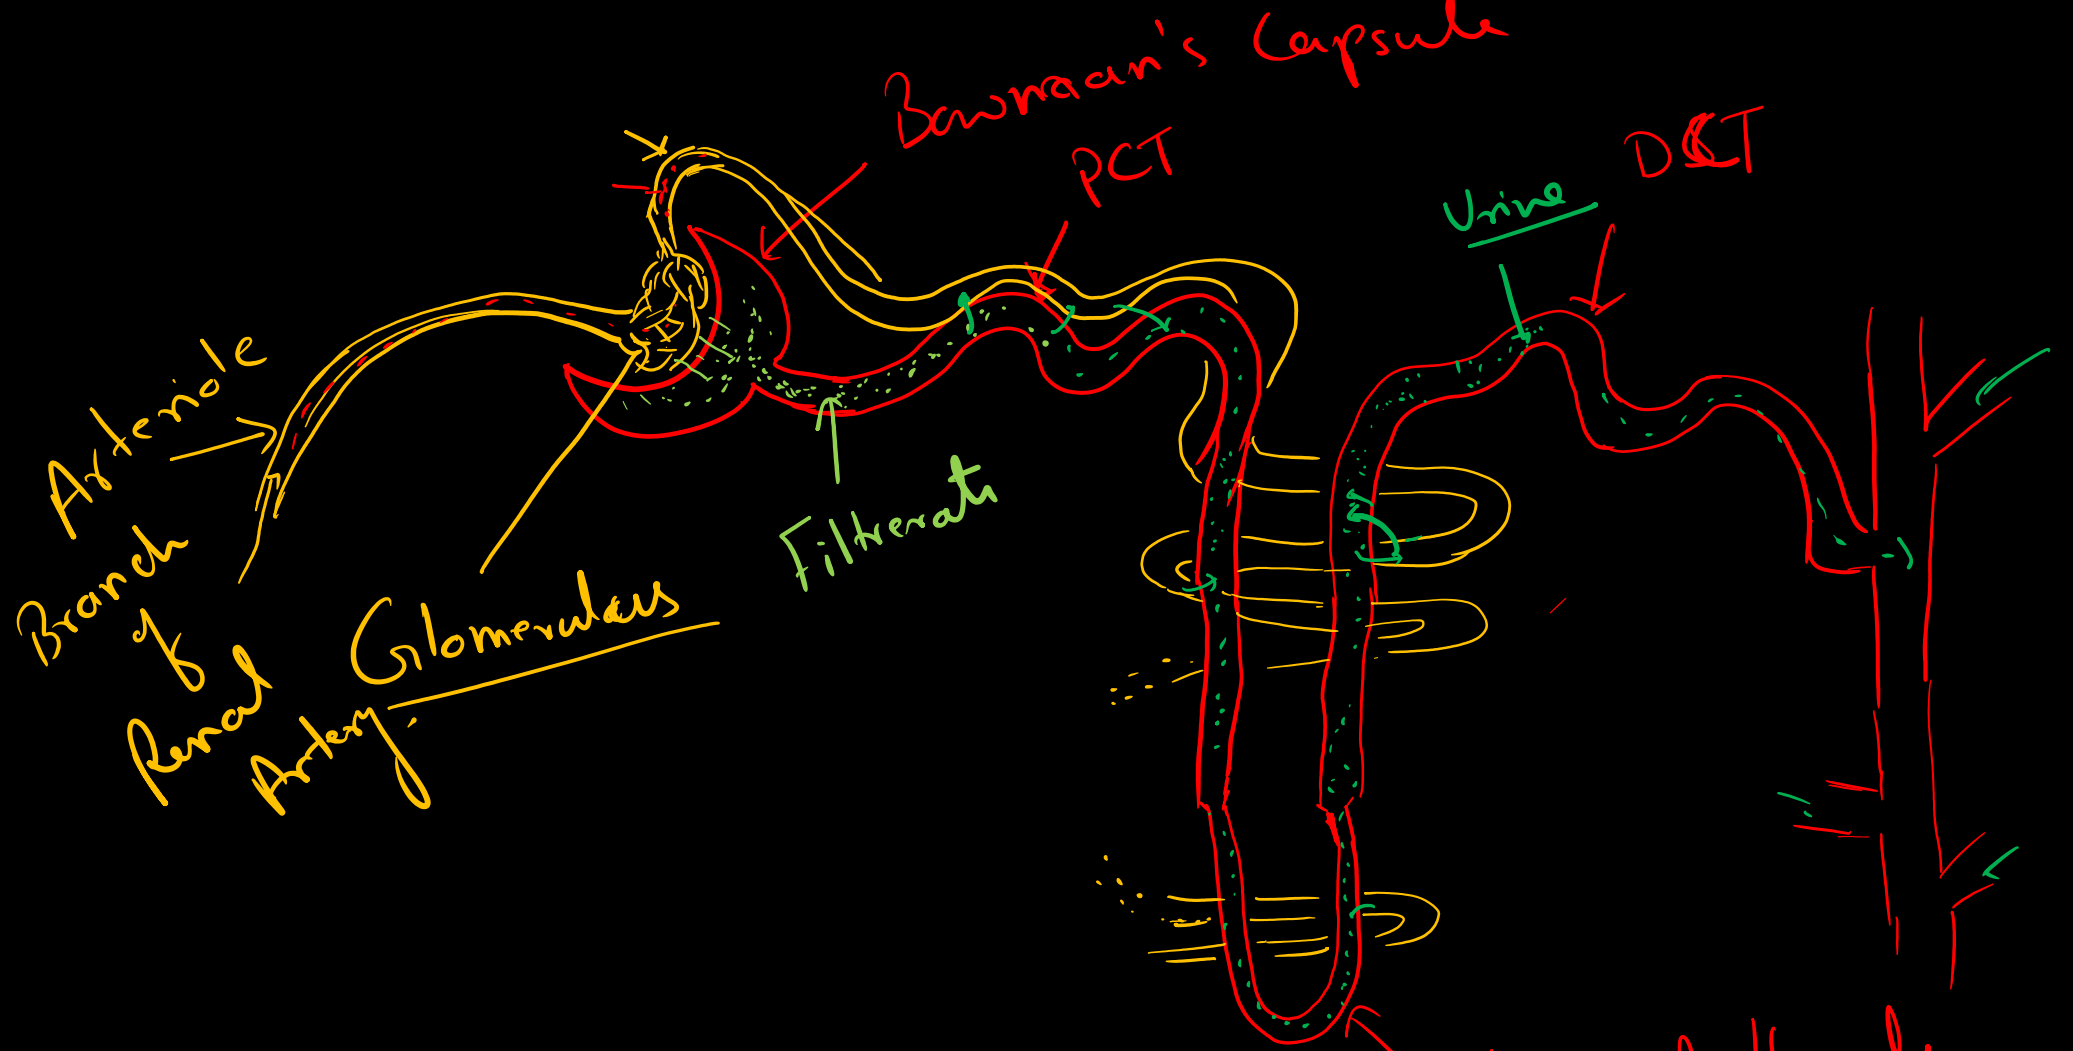 Bowmaan's Capsule
PCT
DCT
Urine
Arteriole
Branch
of
Renal
Artery.
Glomerulaus
Filtrerate